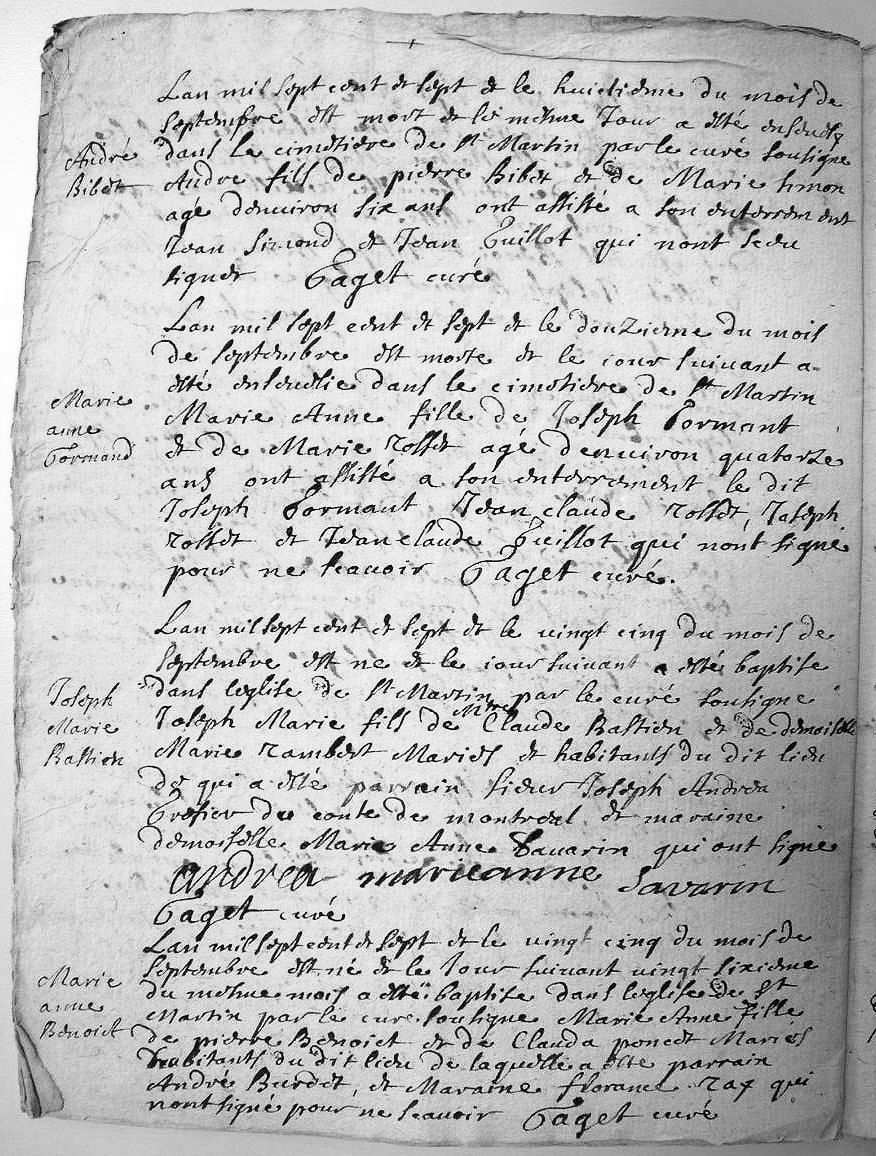 Lan mil sept cent et sept et le huictieme du mois de
septembre est mort et le mesme Jour a esté enseuely
dans le cimetiere de St Martin par le curé soussigne
André
Bibet
Andre fils de pierre Bibet et de Marie simon
agé denviron six ans ont assiste a son enterrement
Jean Simond et Jean Guillot qui nont sceu
signer Gaget curé
Lan mil sept cent et sept et le douzieme du mois
de septembre est morte et le iour suivant a
esté enseuelie dans le cimetiere de St Martin
Marie
anne
Formand
Marie Anne fille de Joseph Formant
et de Marie rosset agé denviron quatorze
ans ont assisté a son enterrement le dit
Joseph Formant Jean claude rosset, Joseph
rosset et Jean claude Guillot qui nont signé
pour ne scavoir Gaget curé.
Lan mil sept cent et sept et le vingt cinq du mois de
septembre est ne et le iour suivant a esté baptise
dans leglise de St Martin par le curé sousigne
Joseph
Marie
Bastien
Joseph Marie fils de Mtre Claude Bastien et de demoiselle
Marie rambert Mariés et habitants du dit lieu
de qui a esté parrain sieur Joseph Andrea
Grefier du conte de montreal et maraine
demoiselle Marie Anne Savarin qui ont signé
andrea marieanne Savarin
Gaget curé
Lan mil sept cent et sept et le vingt cinq du mois de
septembre est né et le Jour suivant vingt sixieme
du mesme mois a esté baptise dans leglise de St
Marie
anne
Benoict
Martin par le curé sousigne Marie Anne fille
de pierre Benoict et de Clauda poncet Mariés
habitants du dit lieu de laquelle a esté parrain
André Burdet, et Maraine florance ray qui
nont signé pour ne scavoir Gaget curé